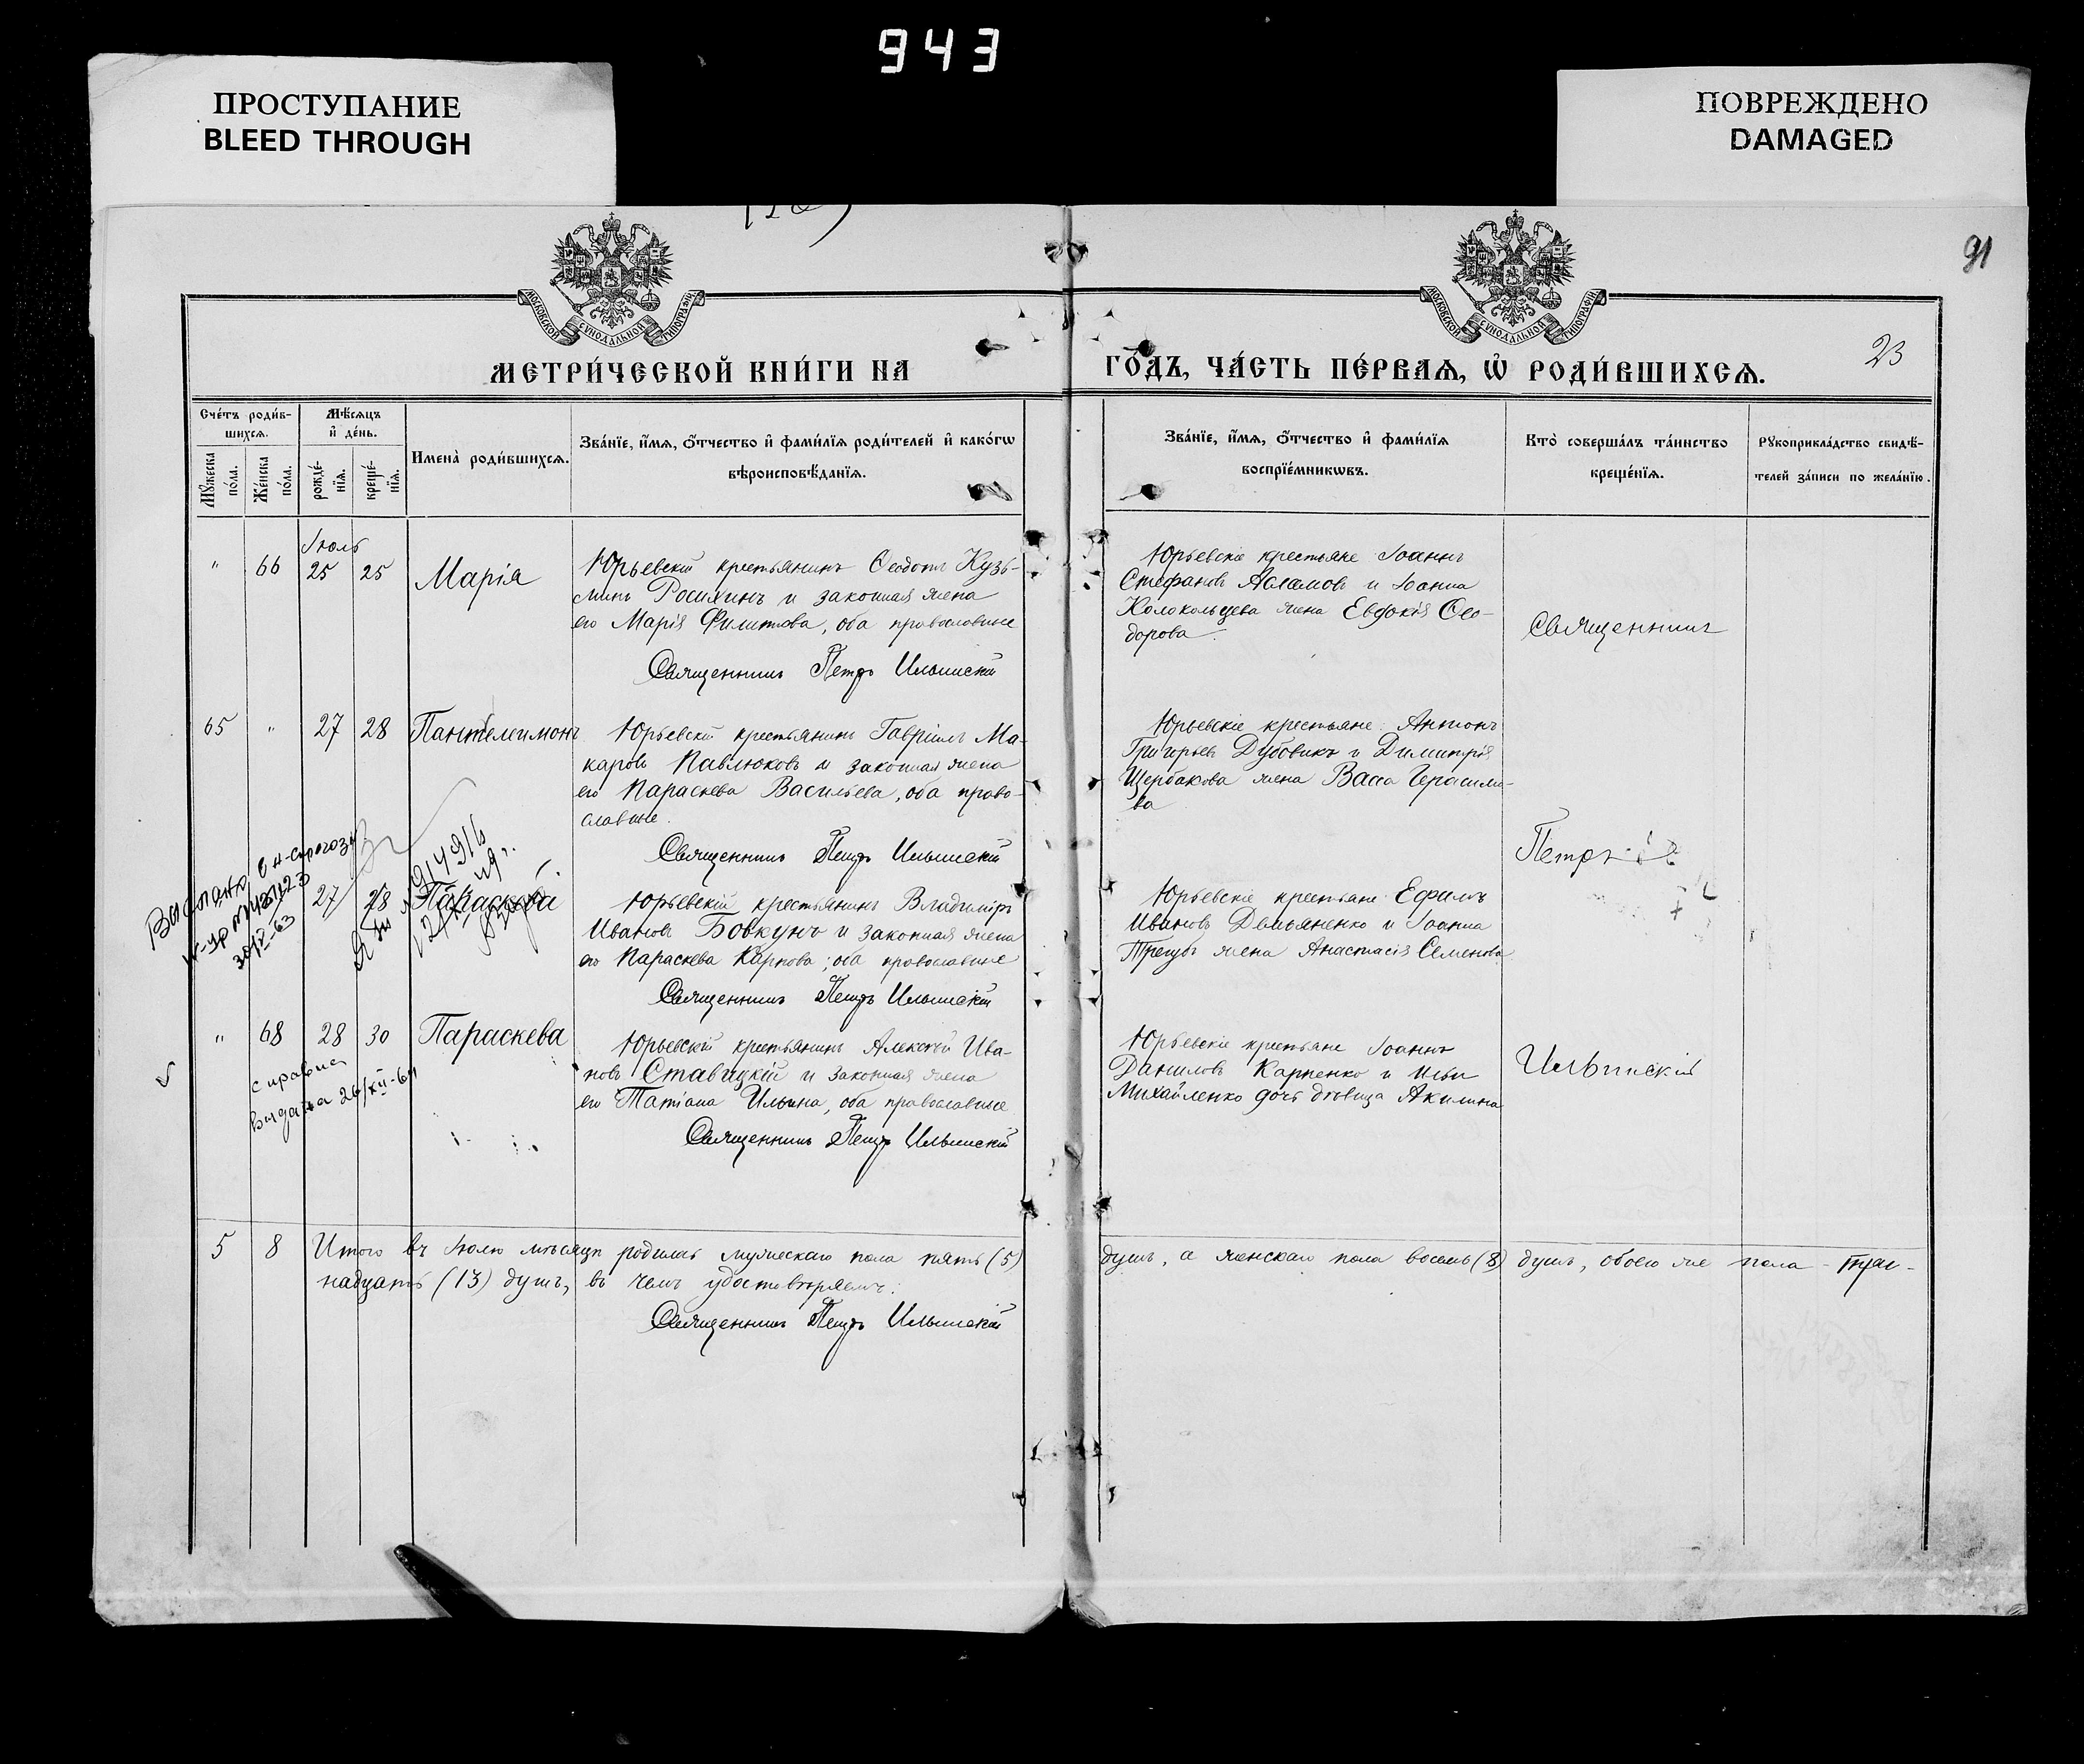 943
ПРОСТУПАНИЕ
BLEED THROUGH
ПОВРЕЖДЕНО
DAMAGED
91
МОСКОВСКОЙ СѴНОДАЛЬНОЙ ТИПОГРАФІИ
МОСКОВСКОЙ СѴНОДАЛЬНОЙ ТИПОГРАФІИ
23
МЕТРИ́ЧЕСКОЙ КНИ́ГИ НА ГО́ДЪ, ЧА́СТЬ ПЕ́РВАѦ, Ѡ҆ РОДИ́ВШИХСѦ.
Сче́тъ роди́в-
шихсѧ.
Мѣ́сѧцъ
и҆ де́нь.
Мꙋ́жеска
по́ла.
Же́нска
по́ла.
рожде́-
нїѧ.
креще́-
нїѧ.
Имена̀ роди́вшихсѧ.
Зва́нїе, и҆́мѧ, ѻ҆́тчество и҆ фами́лїѧ роди́телей и҆ како́гѡ
вѣроисповѣ́данїѧ.
Зва́нїе, и҆́мѧ, ѻ҆́тчество и҆ фами́лїѧ
воспрїе́мникѡвъ.
Кто̀ соверша́лъ та́инство
креще́нїѧ.
Рꙋкоприкла́дство свидѣ́-
телей за́писи по жела́нїю.
Іюль
" 66 25 25 Марія
Юрьевскій крестьянинъ Ѳеодотъ Кузь-
минъ Росихинъ и законная жена
его Марія Филиппова, оба православные
Священникъ Петръ Ильинскій
Юрьевскіе крестьяне Іоаннъ
Стефановъ и Іоанна
Колокольцева жена Евдокія Ѳео-
дорова
Священникъ
65 " 27 28 Пантелеимонъ
Юрьевскій крестьянинъ Гавріилъ Ма-
каровъ Павлюковъ и законная жена
его Параскева Васильева, оба право-
славные.
Священникъ Петръ Ильинскій
Юрьевскіе крестьяне: Антонъ
Григорьевъ Дубовикъ и Димитрія
Щербакова жена Васса Герасимо-
ва
Петръ
27 28 Параскева
Юрьевскій крестьянинъ Владиміръ
Ивановъ Бовкунъ и законная жена
его Параскева Карпова; оба православные
Священникъ Петръ Ильинскій
Юрьевскіе крестьяне: Ефимъ
Ивановъ Демьяненко и Іоанна
жена Анастасія Семенова
" 68 28 30 Параскева
справка
выдана 26/XII-64
Юрьевскій крестьянинъ Алексѣй Ива-
новъ Ставицкій и законная жена
его Татіана Ильина, оба православные
Священникъ Петръ Ильинскій
Юрьевскіе крестьяне Іоаннъ
Даниловъ Карпенко и Ильи
Михайленко дочь дѣвица Акилина
Ильинскій
5 8 Итого въ Іюлѣ мѣсяцѣ родилось мужескаго пола пять (5) душъ, а женскаго пола восемь (8) душъ, обоего же пола - три-
надцать (13) душъ, въ чемъ удостовѣряемъ:
Священникъ Петръ Ильинскій